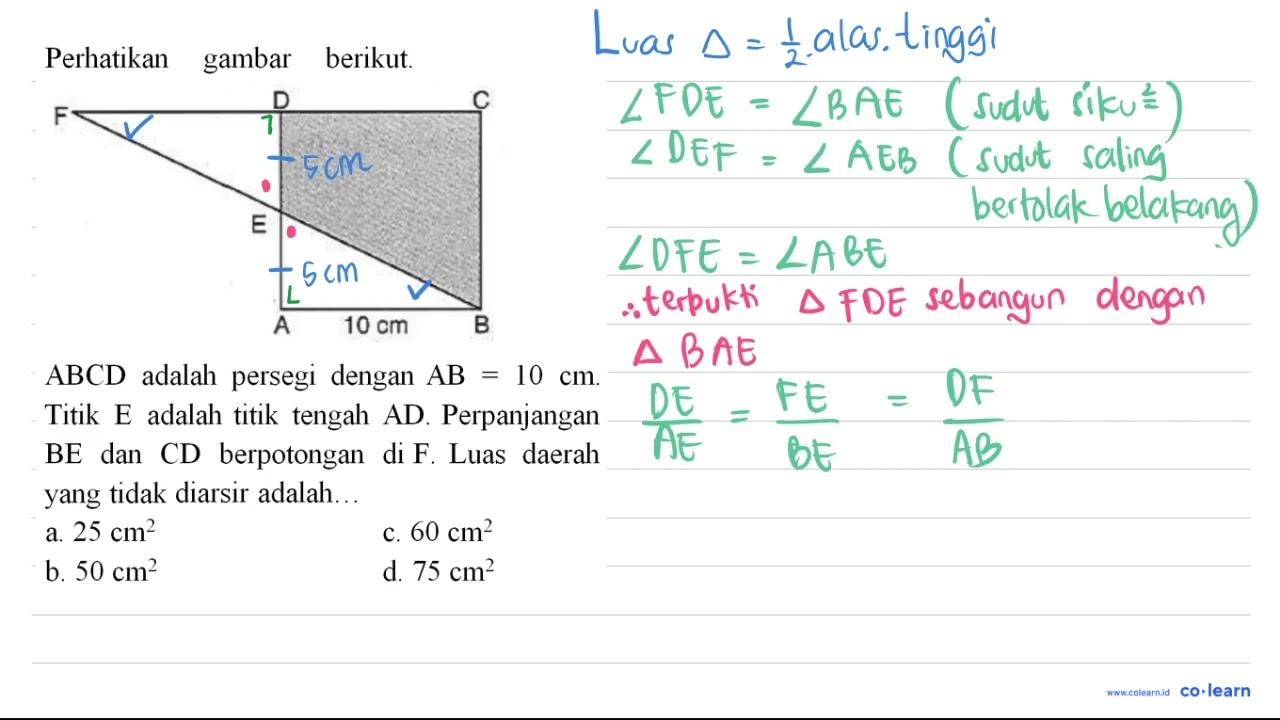 Perhatikan gambar berikut.
F
D
C
5 cm
E
5 cm
A
10 cm
B
ABCD adalah persegi dengan AB = 10 cm.
Titik E adalah titik tengah AD. Perpanjangan
BE dan CD berpotongan di F. Luas daerah
yang tidak diarsir adalah...
a. 25 cm²
c. 60 cm²
b. 50 cm²
d. 75 cm²
Luas Δ = 1/2 . alas . tinggi
∠FDE = ∠BAE (sudut siku²)
∠DEF = ∠AEB (sudut saling
bertolak belakang)
∠DFE = ∠ABE
∴ terbukti Δ FDE sebangun dengan
Δ BAE
DE/AE = FE/BE = DF/AB
www.colearn.id co·learn